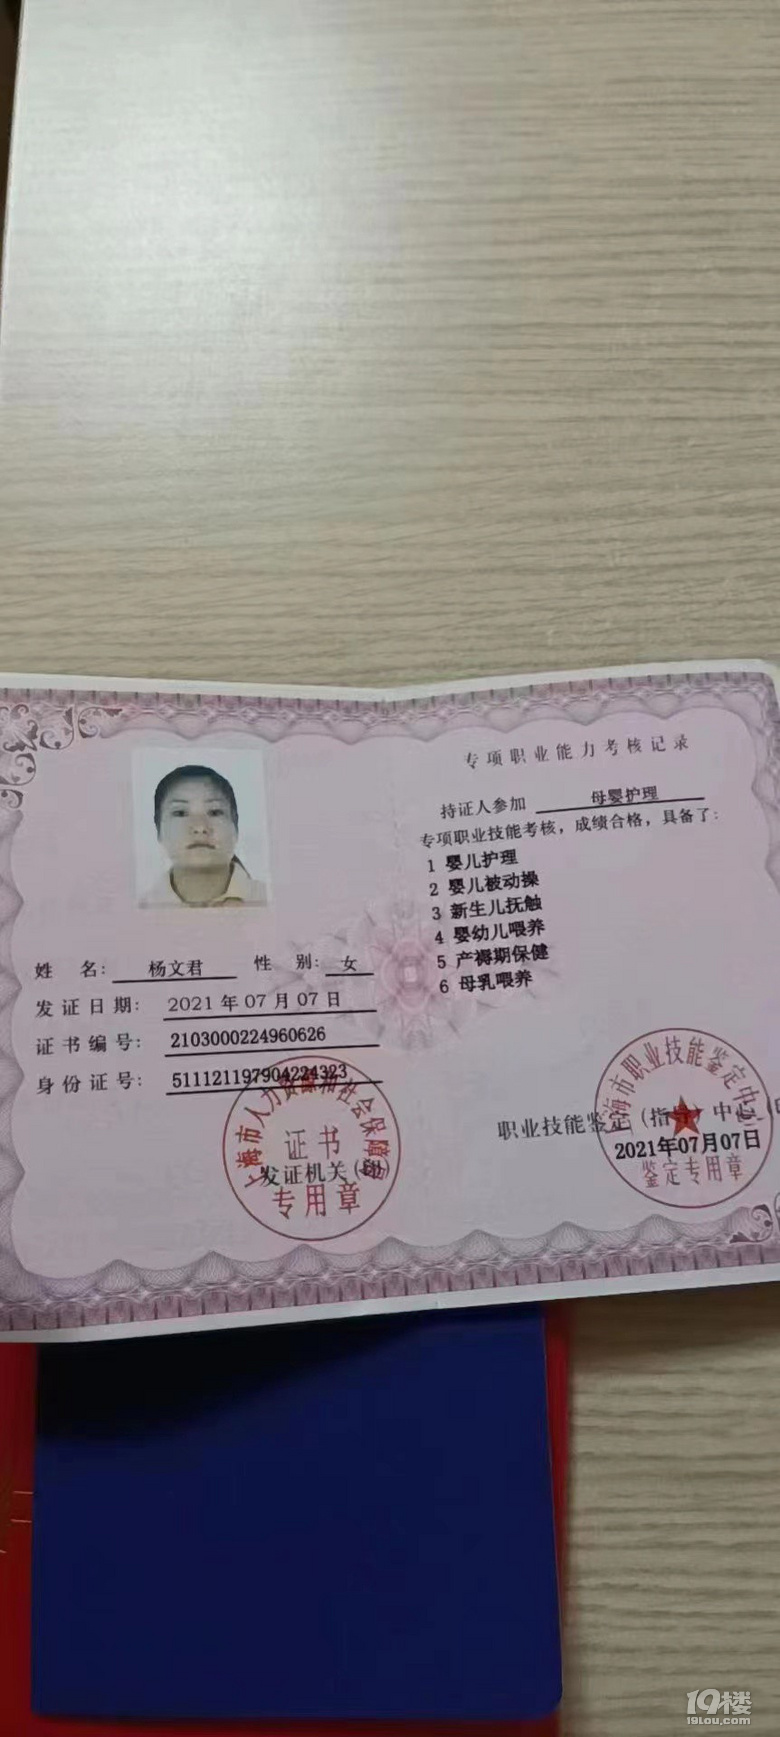 姓 名: 杨文君 性 别: 女
发 证 日 期: 2021 年 07 月 07 日
证 书 编 号: 2103000224960626
身 份 证 号: 511121197904224323
上海市人力资源和社会保障局
证书
发证机关(
专用章
专项职业能力考核记录
持证人参加 母婴护理
专项职业技能考核，成绩合格，具备了:
1 婴儿护理
2 婴儿被动操
3 新生儿抚触
4 婴幼儿喂养
5 产褥期保健
6 母乳喂养
上海市职业技能鉴定中心
职业技能鉴定(指导)中心(印
2021年07月07日
鉴定专用章
19楼
19lou.com